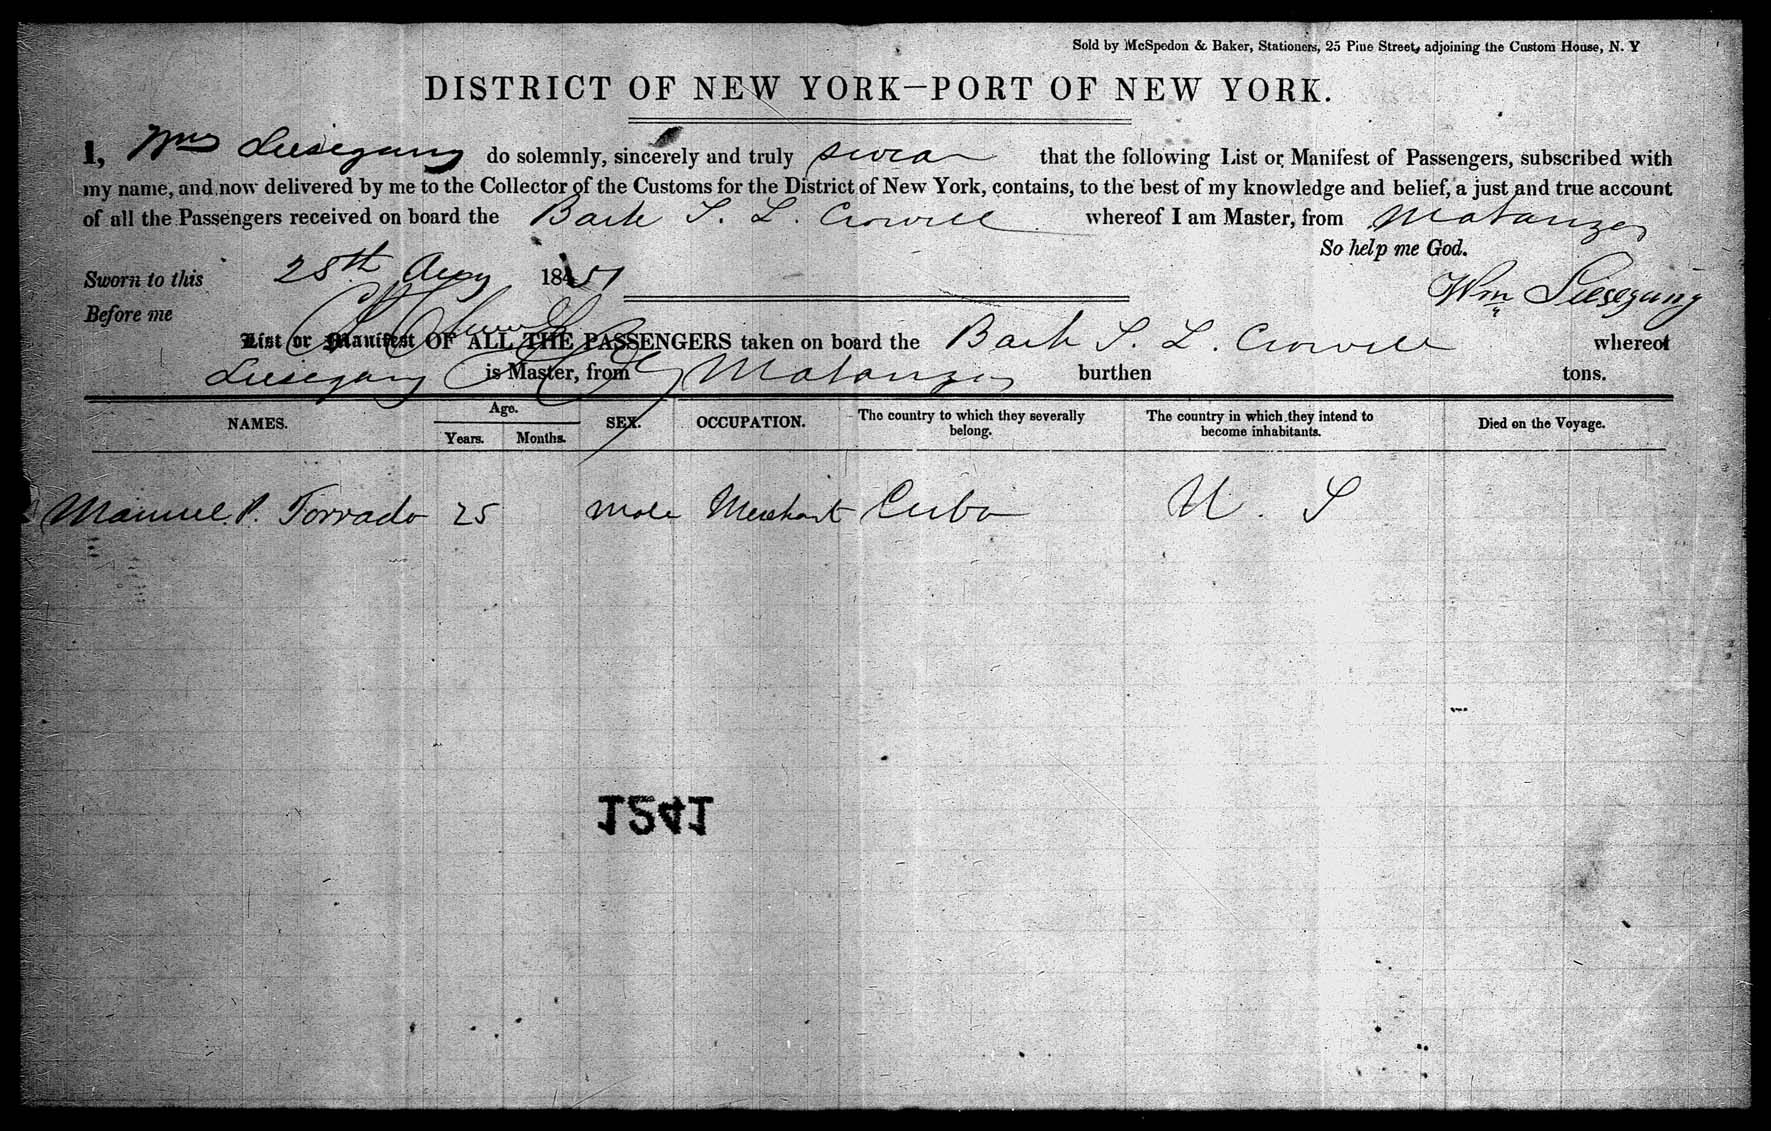 Sold by McSpedon & Baker, Stationers, 25 Pine Street, adjoining the Custom House, N. Y
DISTRICT OF NEW YORK—PORT OF NEW YORK.
I, Wm Liesegang do solemnly, sincerely and truly swear that the following List or Manifest of Passengers, subscribed with
my name, and now delivered by me to the Collector of the Customs for the District of New York, contains, to the best of my knowledge and belief, a just and true account
of all the Passengers received on board the Bark S. L. Crowell whereof I am Master, from Matanzas
So help me God.
Sworn to this 25th Aug 1851
Wm Liesegang
Before me
List or Manifest OF ALL THE PASSENGERS taken on board the Bark S. L. Crowell whereof
Liesegang is Master, from Matanzas burthen tons.
NAMES. Age. Years. Months. SEX. OCCUPATION. The country to which they severally belong. The country in which they intend to become inhabitants. Died on the Voyage.
Manuel P. Torrado 25 male Merchant Cuba U. S
1241